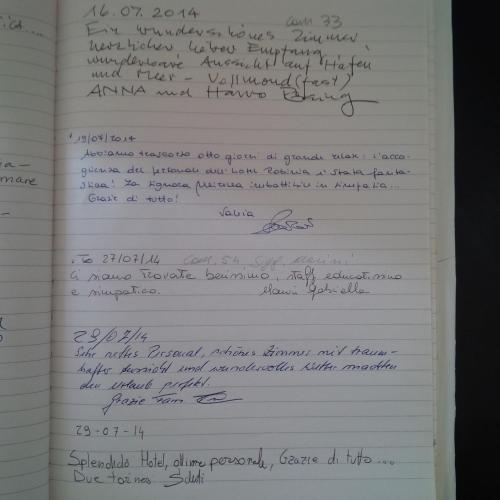 16.07.2014 cam 33
Ein wunderschönes Zimmer,
herzlicher, lieber Empfang,
wunderbare Aussicht auf Hafen
und Meer - Vollmond (fast)
ANNA und Harro
19/07/2014
Abbiamo trascorso otto giorni di grande relax: l'acco-
glienza del personale dell'hotel è stata fanta-
stica! La signora imbattibile in simpatia...
Grazie di tutto!
To 27/07/14 Cam. 54 Sigg.
Ci siamo trovate benissimo, staff educatissimo
e simpatico. Gabriella
29/07/14
Sehr nettes Personal, schönes Zimmer mit traum-
hafter Aussicht und wundervolles Wetter machten
den Urlaub perfekt.
Grazie Fam
29-07-14
Splendido Hotel, ottimo personale, Grazie di tutto...
Due torinesi Saluti
mare